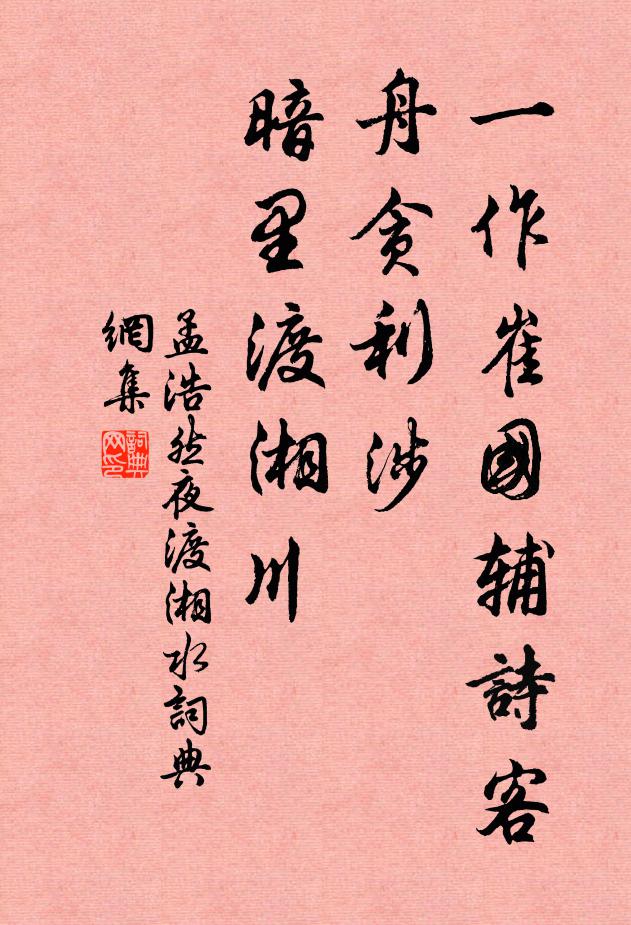 一作崔國輔詩客
舟貪利涉
暗里渡湘川
孟浩然夜渡湘水詞典
網集
詞典網印